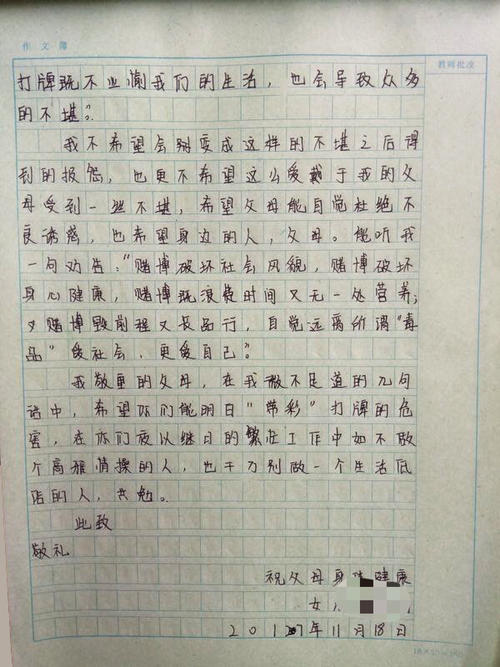 作文簿
教师批准
打牌既不业謝我们的生活，也会导致众多
的不堪"。
我不希望会树变成这样的不堪之后得
到的报怨，也更不希望这么爱戴于我的父
母受到一丝不堪，希望父母能自觉杜绝不
良诱惑，也希望身边的人，父母。能听我
一句劝告："赌博破坏社会风貌，赌博破坏
身心健康，赌博既浪费时间又无一处营养；
夕赌博毁前程又长品行，自觉远离所谓"毒
品"爱社会，更爱自己"。
我敬重的父母，在我微不足道的几句
话中，希望你们能明白"带彩"打牌的危
害，在你们夜以继日的繁忙工作中如不做
个高雅情操的人，也千万别做一个生活低
沾的人，共勉。
此致
敬礼
祝父母身体健康
女
2017年11月18日